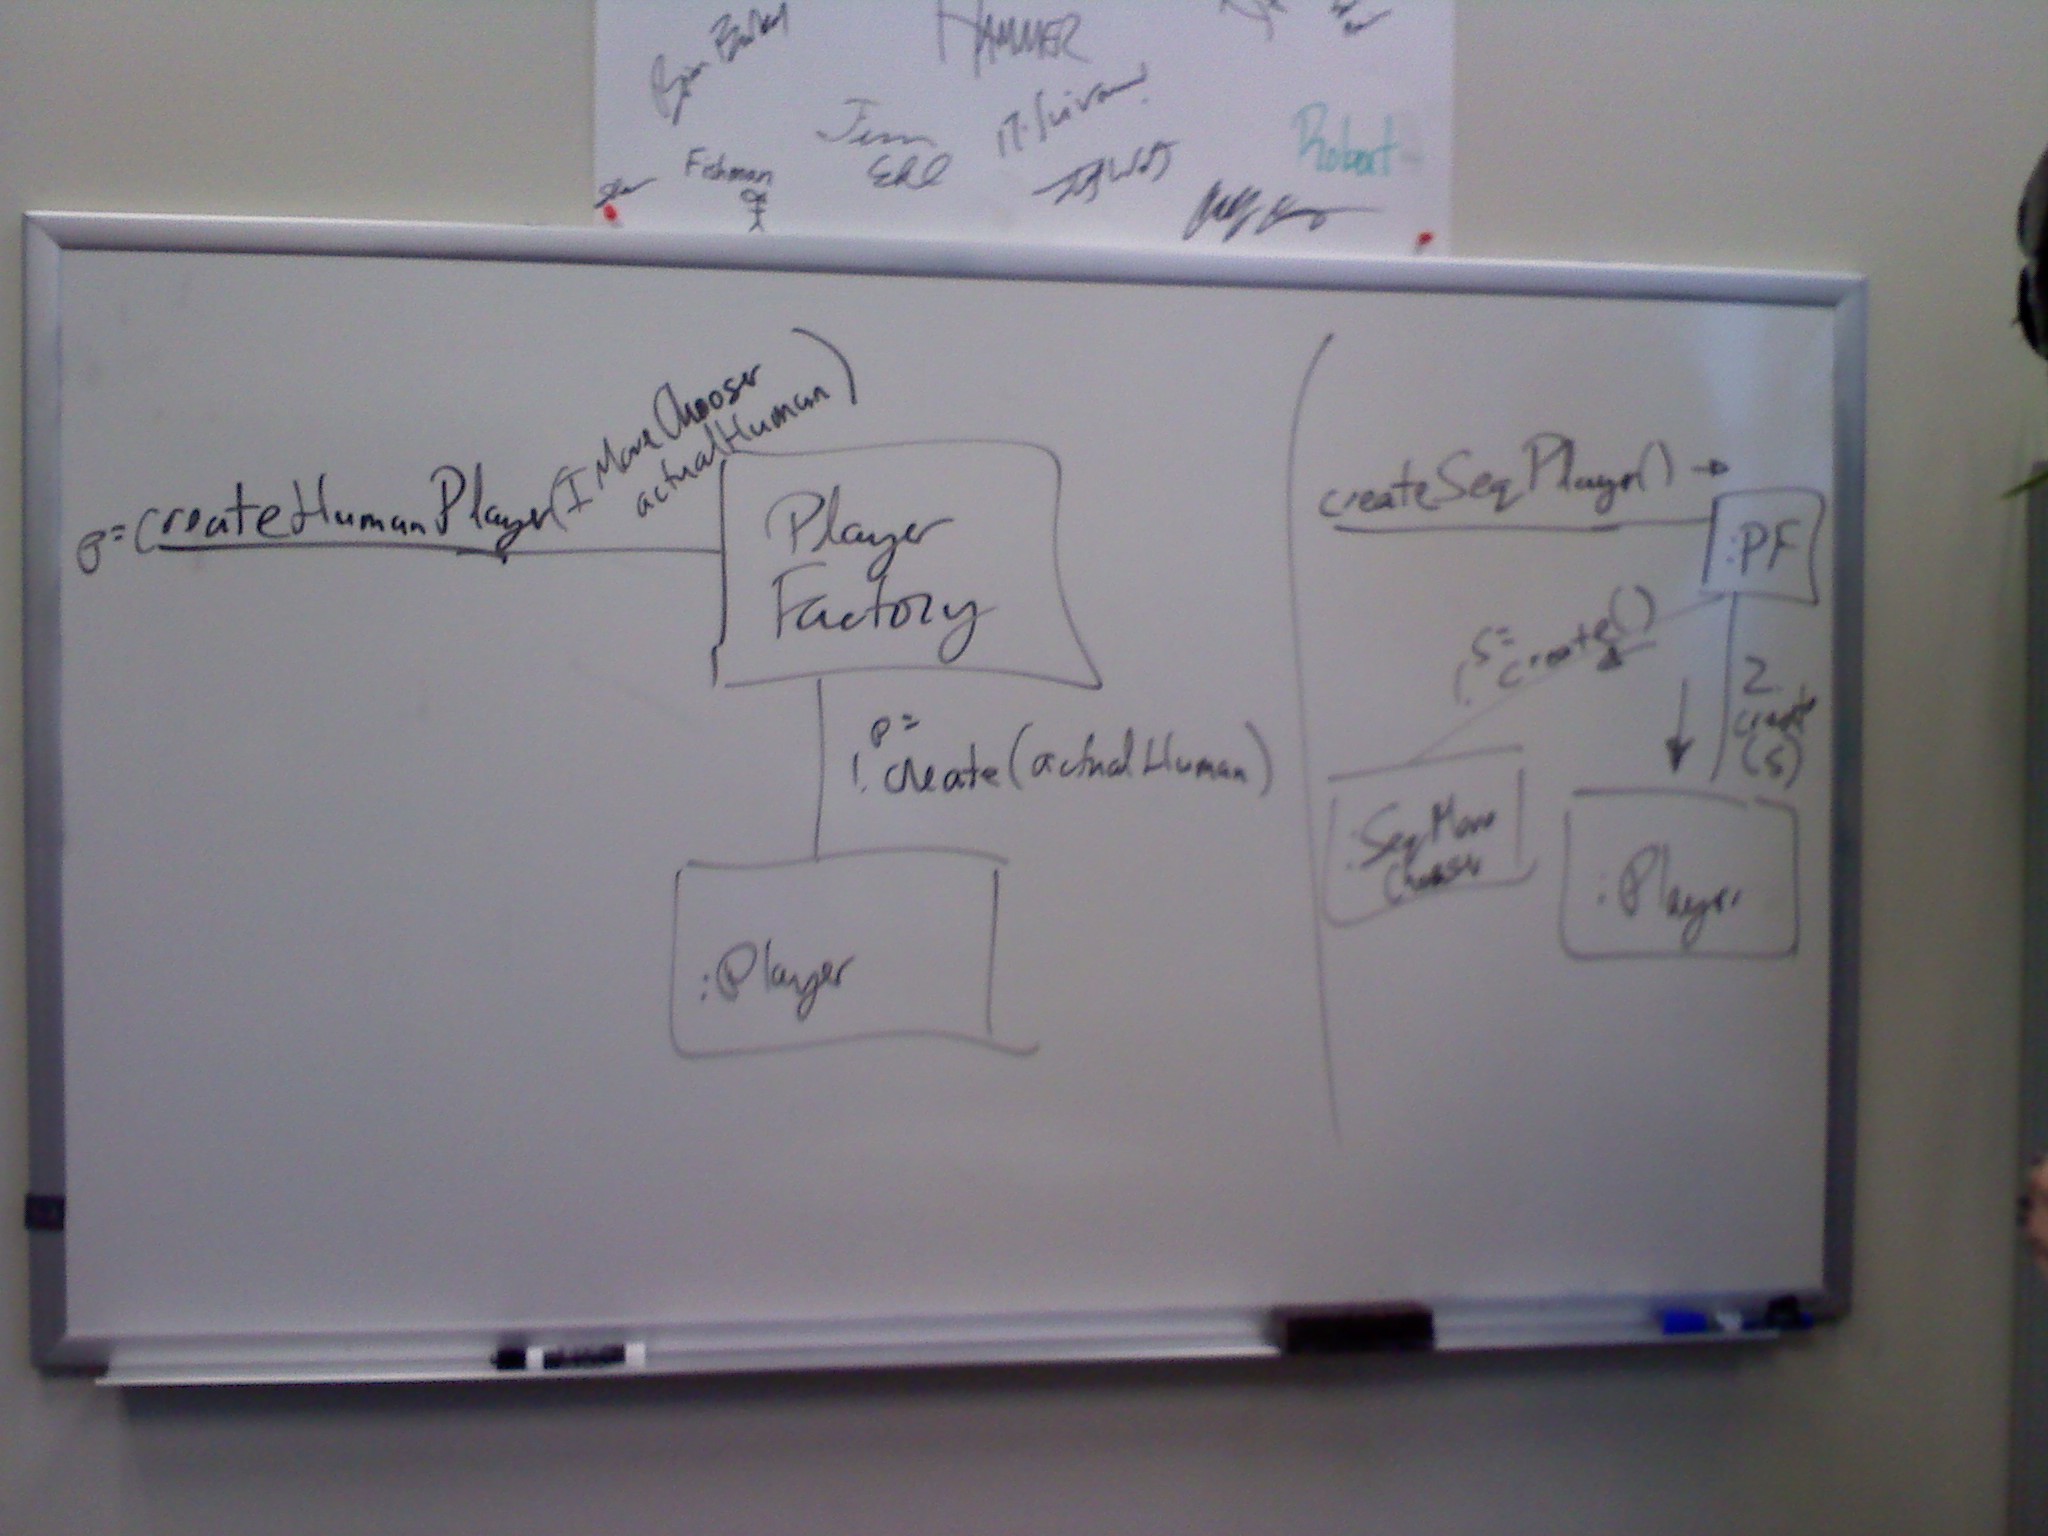 HAMMER
Jim
Ehl
Fishman
Robert
p=createHumanPlayer(IMoveChooser
actualHuman)
Player
Factory
p=
1. create(actualHuman)
:Player
createSeqPlayer() →
:PF
s=
1. create()
2
create
(s)
:SeqMove
Chooser
:Player